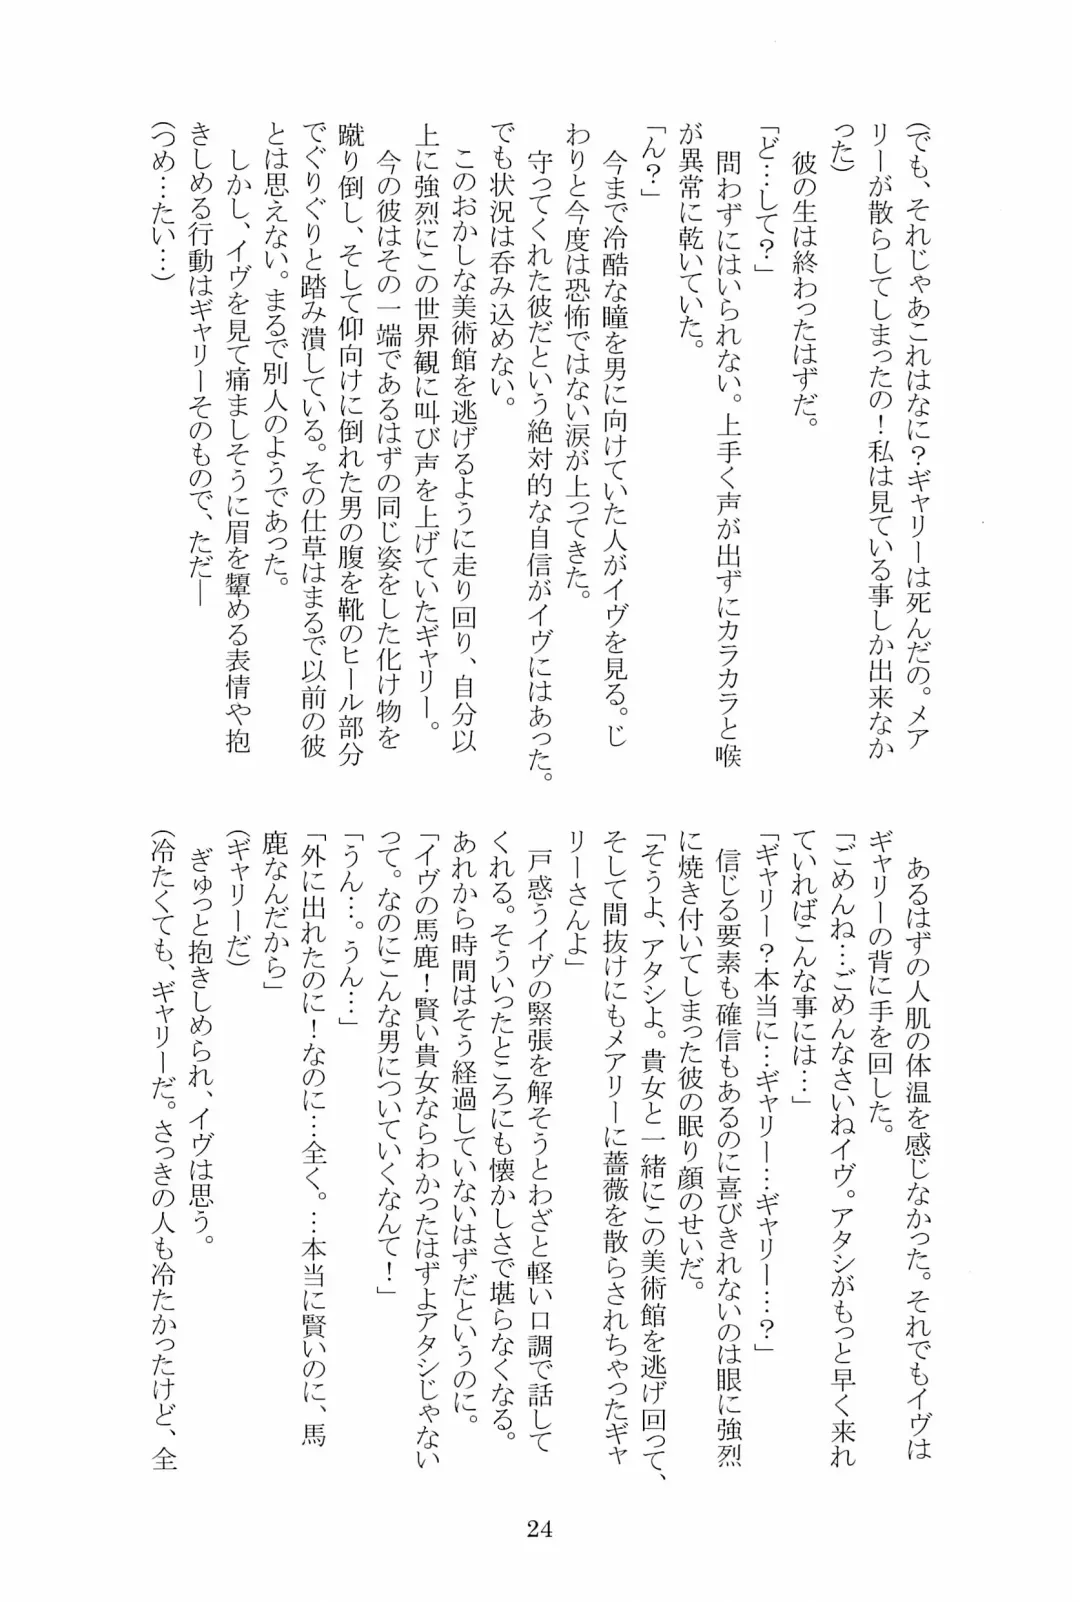 (でも、それじゃあこれはなに?ギャリーは死んだの。メア
リーが散らしてしまったの!私は見ている事しか出来なか
った)
彼の生は終わったはずだ。
「ど…して?」
問わずにはいられない。上手く声が出ずにカラカラと喉
が異常に乾いていた。
「ん?」
今まで冷酷な瞳を男に向けていた人がイヴを見る。じ
わりと今度は恐怖ではない涙が上ってきた。
守ってくれた彼だという絶対的な自信がイヴにはあった。
でも状況は呑み込めない。
このおかしな美術館を逃げるように走り回り、自分以
上に強烈にこの世界観に叫び声を上げていたギャリー。
今の彼はその一端であるはずの同じ姿をした化け物を
蹴り倒し、そして仰向けに倒れた男の腹を靴のヒール部分
でぐりぐりと踏み潰している。その仕草はまるで以前の彼
とは思えない。まるで別人のようであった。
しかし、イヴを見て痛ましそうに眉を顰める表情や抱
きしめる行動はギャリーそのもので、ただ―
(つめ…たい…)
あるはずの人肌の体温を感じなかった。それでもイヴは
ギャリーの背に手を回した。
「ごめんね…ごめんなさいねイヴ。アタシがもっと早く来れ
ていればこんな事には…」
「ギャリー?本当に…ギャリー…ギャリー…?」
信じる要素も確信もあるのに喜びきれないのは眼に強烈
に焼き付いてしまった彼の眠り顔のせいだ。
「そうよ、アタシよ。貴女と一緒にこの美術館を逃げ回って、
そして間抜けにもメアリーに薔薇を散らされちゃったギャ
リーさんよ」
戸惑うイヴの緊張を解そうとわざと軽い口調で話して
くれる。そういったところにも懐かしさで堪らなくなる。
あれから時間はそう経過していないはずだというのに。
「イヴの馬鹿!賢い貴女ならわかったはずよアタシじゃない
って。なのにこんな男についていくなんて!」
「うん…。うん…」
「外に出れたのに!なのに…全く。…本当に賢いのに、馬
鹿なんだから」
(ギャリーだ)
ぎゅっと抱きしめられ、イヴは思う。
(冷たくても、ギャリーだ。さっきの人も冷たかったけど、全
24